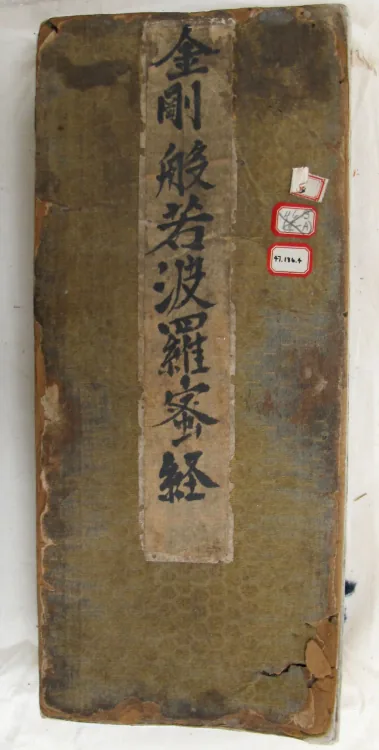 金剛般若波羅蜜経
47.186.4